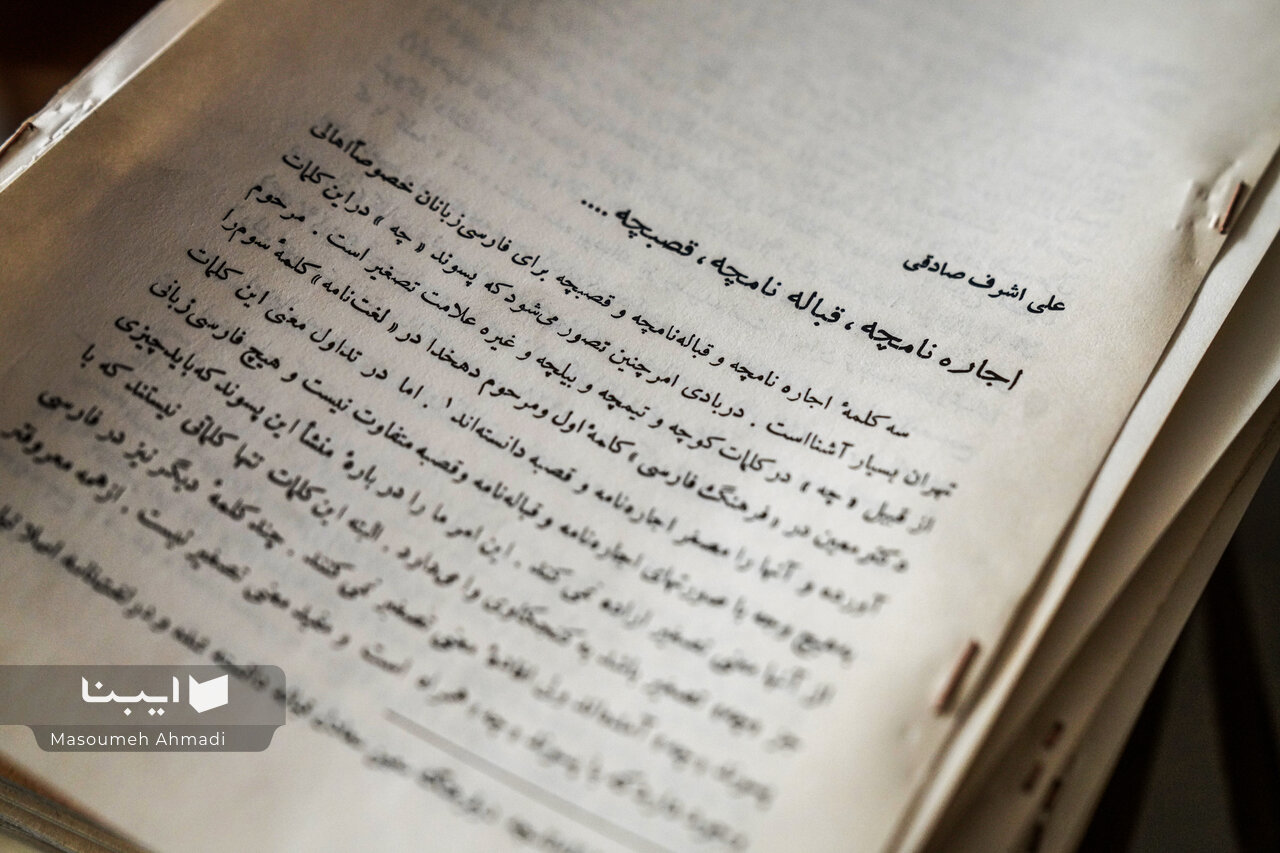 علی اشرف صادقی
اجاره نامچه ، قباله نامچه ، قصبچه ....
سه کلمهٔ اجاره نامچه و قباله‌نامچه و قصبچه برای فارسی‌زبانان خصوصاً اهالی
تهران بسیار آشنااست . دربادی امر چنین تصور می‌شود که پسوند « چه » دراین کلمات
از قبیل « چه » در کلمات کوچه و تیمچه و بیلچه و غیره علامت تصغیر است . مرحوم
دکتر معین در « فرهنگ فارسی » کلمهٔ اول ومرحوم دهخدا در « لغت‌نامه » کلمهٔ سوم‌را
آورده و آنها را مصغر اجاره‌نامه و قصبه دانسته‌اند۱ . اما در تداول معنی این کلمات
به‌هیچ وجه با صورتهای اجاره‌نامه و قباله‌نامه وقصبه متفاوت نیست و هیچ فارسی‌زبانی
از آنها معنی تصغیر اراده نمی‌کند . این امر ما را در بارهٔ منشأ این پسوند که باید چیزی
جز « چه » تصغیر باشد به کنجکاوی وا می‌دارد . البته این کلمات تنها کلماتی نیستند که با
پسوند « چه » آمده‌اند ولی افادهٔ معنی تصغیر نمی‌کنند . چند کلمهٔ دیگر نیز در فارسی
که با پسوند « چه » همراه است و مفید معنی تصغیر نیست . ازهمه معروفتر
ایبنا
Masoumeh Ahmadi